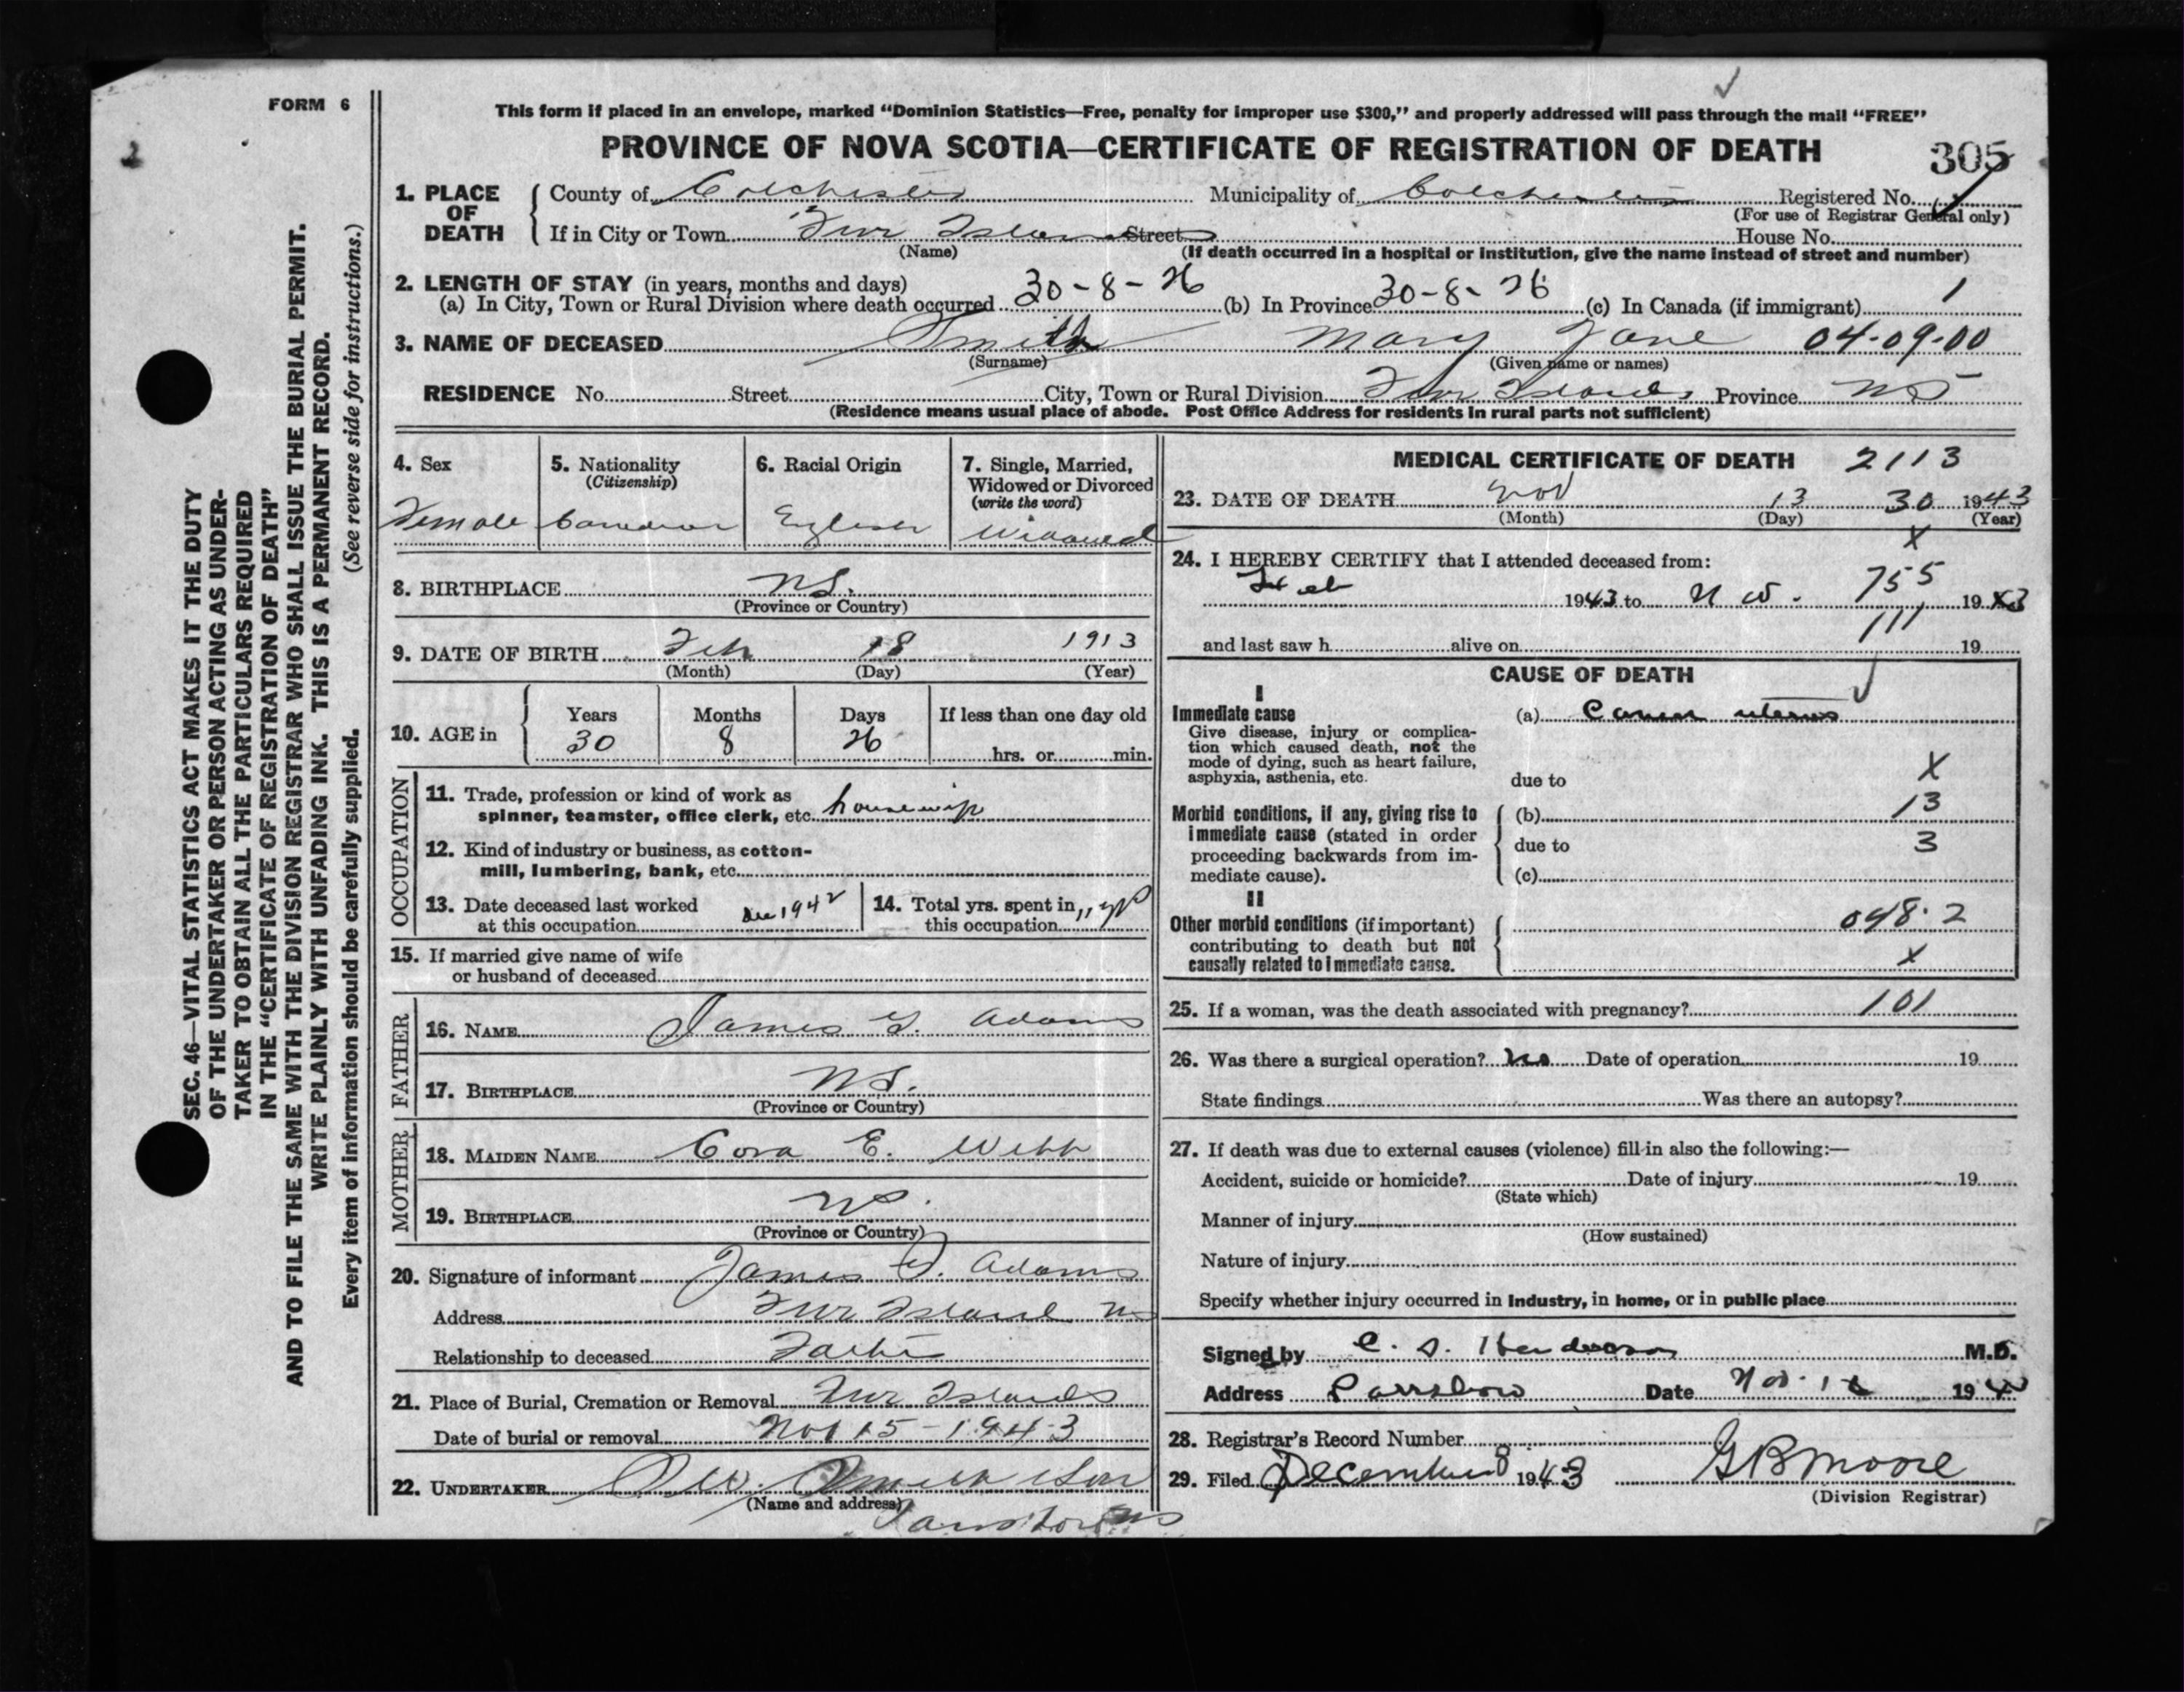 FORM 6
This form if placed in an envelope, marked “Dominion Statistics—Free, penalty for improper use $300,” and properly addressed will pass through the mail “FREE”
PROVINCE OF NOVA SCOTIA—CERTIFICATE OF REGISTRATION OF DEATH 305
1. PLACE OF DEATH County of Colchester Municipality of Colchester Registered No.
(For use of Registrar General only)
If in City or Town Five Islands Street House No.
(Name) (If death occurred in a hospital or institution, give the name instead of street and number)
2. LENGTH OF STAY (in years, months and days)
(a) In City, Town or Rural Division where death occurred 30-8-26 (b) In Province 30-8-26 (c) In Canada (if immigrant) 1
3. NAME OF DECEASED Smith Mary Jane 04.09.00
(Surname) (Given name or names)
RESIDENCE No. Street City, Town or Rural Division Five Islands Province NS
(Residence means usual place of abode. Post Office Address for residents in rural parts not sufficient)
4. Sex Female
5. Nationality (Citizenship) Canadian
6. Racial Origin English
7. Single, Married, Widowed or Divorced (write the word) Widowed
8. BIRTHPLACE NS.
(Province or Country)
9. DATE OF BIRTH Feb 18 1913
(Month) (Day) (Year)
10. AGE in Years 30 Months 8 Days 26 If less than one day old hrs. or min.
OCCUPATION
11. Trade, profession or kind of work as
spinner, teamster, office clerk, etc. housewife
12. Kind of industry or business, as cotton-
mill, lumbering, bank, etc.
13. Date deceased last worked
at this occupation Dec 1942
14. Total yrs. spent in
this occupation 11 yrs
15. If married give name of wife
or husband of deceased
FATHER
16. NAME James Y. Adams
17. BIRTHPLACE NS.
(Province or Country)
MOTHER
18. MAIDEN NAME Cora E. Webb
19. BIRTHPLACE NS.
(Province or Country)
20. Signature of informant James Y. Adams
Address Five Islands NS
Relationship to deceased Father
21. Place of Burial, Cremation or Removal Five Islands
Date of burial or removal Nov 15-1943
22. UNDERTAKER Smith & Son
(Name and address)
MEDICAL CERTIFICATE OF DEATH 2113
23. DATE OF DEATH Nov 13 30 1943
(Month) (Day) (Year)
X
24. I HEREBY CERTIFY that I attended deceased from:
Feb 1943 to Nov. 755 1943
111
and last saw h alive on 19
CAUSE OF DEATH
I
Immediate cause
Give disease, injury or complica-
tion which caused death, not the
mode of dying, such as heart failure,
asphyxia, asthenia, etc.
(a) Cancer uterus
due to X
Morbid conditions, if any, giving rise to
immediate cause (stated in order
proceeding backwards from im-
mediate cause).
(b) 13
due to 3
(c)
II
Other morbid conditions (if important)
contributing to death but not
causally related to immediate cause.
048.2
X
25. If a woman, was the death associated with pregnancy? 101
26. Was there a surgical operation? No Date of operation 19
State findings Was there an autopsy?
27. If death was due to external causes (violence) fill in also the following:—
Accident, suicide or homicide? Date of injury 19
(State which)
Manner of injury
(How sustained)
Nature of injury
Specify whether injury occurred in Industry, in home, or in public place
Signed by C. S. Henderson M.D.
Address Parrsboro Date Nov. 194
28. Registrar's Record Number
29. Filed December 8 1943 G B Moore
(Division Registrar)
SEC. 46—VITAL STATISTICS ACT MAKES IT THE DUTY
OF THE UNDERTAKER OR PERSON ACTING AS UNDER-
TAKER TO OBTAIN ALL THE PARTICULARS REQUIRED
IN THE “CERTIFICATE OF REGISTRATION OF DEATH”
AND TO FILE THE SAME WITH THE DIVISION REGISTRAR WHO SHALL ISSUE THE BURIAL PERMIT.
WRITE PLAINLY WITH UNFADING INK. THIS IS A PERMANENT RECORD.
Every item of information should be carefully supplied. (See reverse side for instructions.)